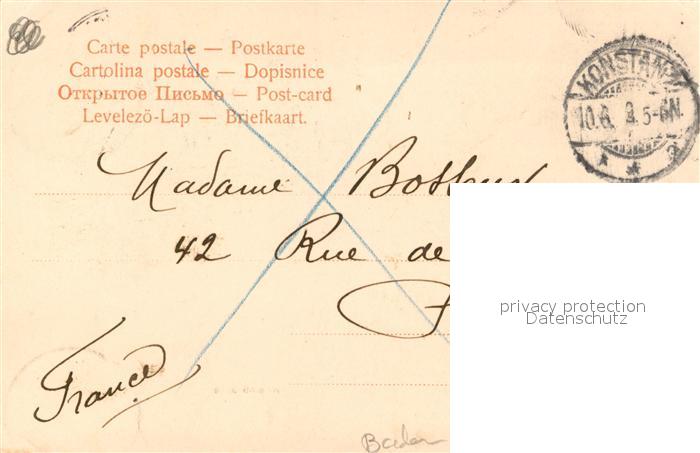 Carte postale — Postkarte
Cartolina postale — Dopisnice
Открытое Письмо — Post-card
Levelező-Lap — Briefkaart.
KONSTANZ
5-6N.
Madame
42 Rue de
France
privacy protection
Datenschutz